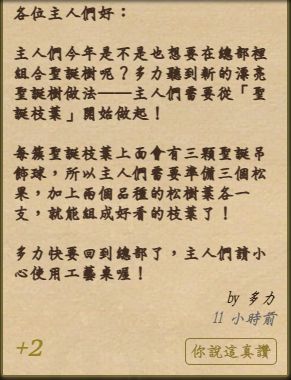 各位主人們好：
主人們今年是不是也想要在總部裡
組合聖誕樹呢？多力聽到新的漂亮
聖誕樹做法──主人們需要從「聖
誕枝葉」開始做起！
每簇聖誕枝葉上面會有三顆聖誕吊
飾球，所以主人們需要準備三個松
果，加上兩個品種的松樹葉各一
支，就能組成好看的枝葉了！
多力快要回到總部了，主人們請小
心使用工藝桌喔！
by 多力
11 小時前
+2
你說這真讚